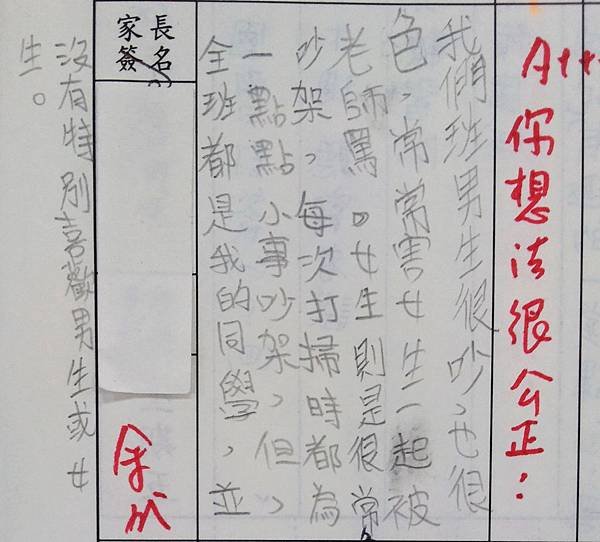 A+++
你想法很公正：
我們班男生很吵，也很
色，常常害女生一起被
老師罵。女生則是很常
吵架，每次打掃時都為
一點點小事吵架，但，
全班都是我的同學，並
家長
簽名
余
沒有特別喜歡男生或女
生。